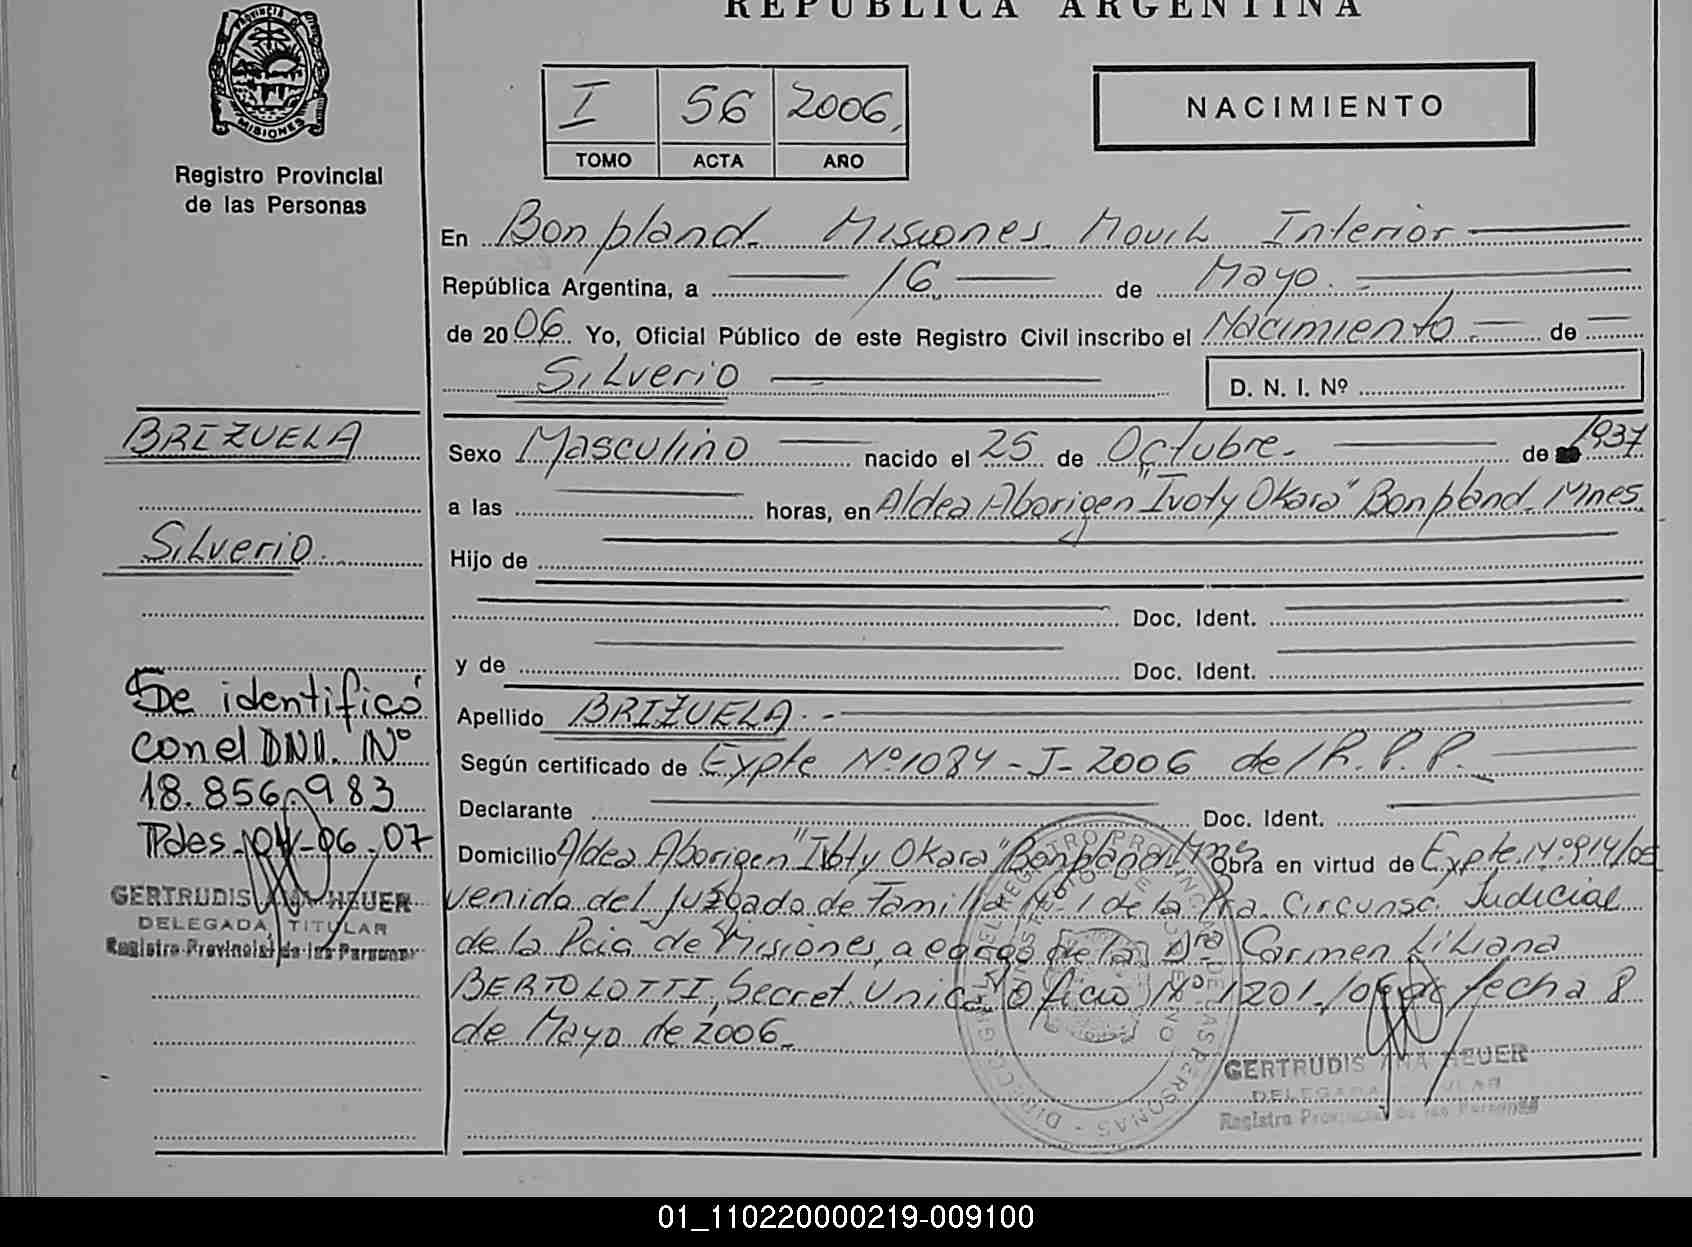 REPUBLICA ARGENTINA
PROVINCIA DE
MISIONES
Registro Provincial
de las Personas
I 56 2006
TOMO ACTA AÑO
NACIMIENTO
En Bonpland Misiones Movil Interior
República Argentina, a 16 de Mayo
de 2006 Yo, Oficial Público de este Registro Civil inscribo el Nacimiento de
Silverio
D. N. I. Nº
BRIZUELA
Silverio
Sexo Masculino nacido el 25 de Octubre de 1937
a las horas, en Aldea Aborigen "Ivoty Okara" Bonpland Mnes
Hijo de
Doc. Ident.
y de Doc. Ident.
Apellido BRIZUELA
Según certificado de Expte Nº 1084-J-2006 del R.P.P.
Declarante Doc. Ident.
Domicilio Aldea Aborigen "Ivoty Okara" Bonpland Mnes Obra en virtud de Expte Nº 914/05
venida del Juzgado de Familia Nº 1 de la Pra. Circunsc. Judicial
de la Pcia de Misiones, a cargo de la Dra Carmen Liliana
BERTOLOTTI, Secret. Unica, Oficio Nº 1201/06 de fecha 8
de Mayo de 2006.
Se identificó
con el DNI. Nº
18.856.983
Pdes. 04-06-07
GERTRUDIS ANA HEUER
DELEGADA TITULAR
Registro Provincial de las Personas
GERTRUDIS ANA HEUER
DELEGADA TITULAR
Registro Provincial de las Personas
01_110220000219-009100